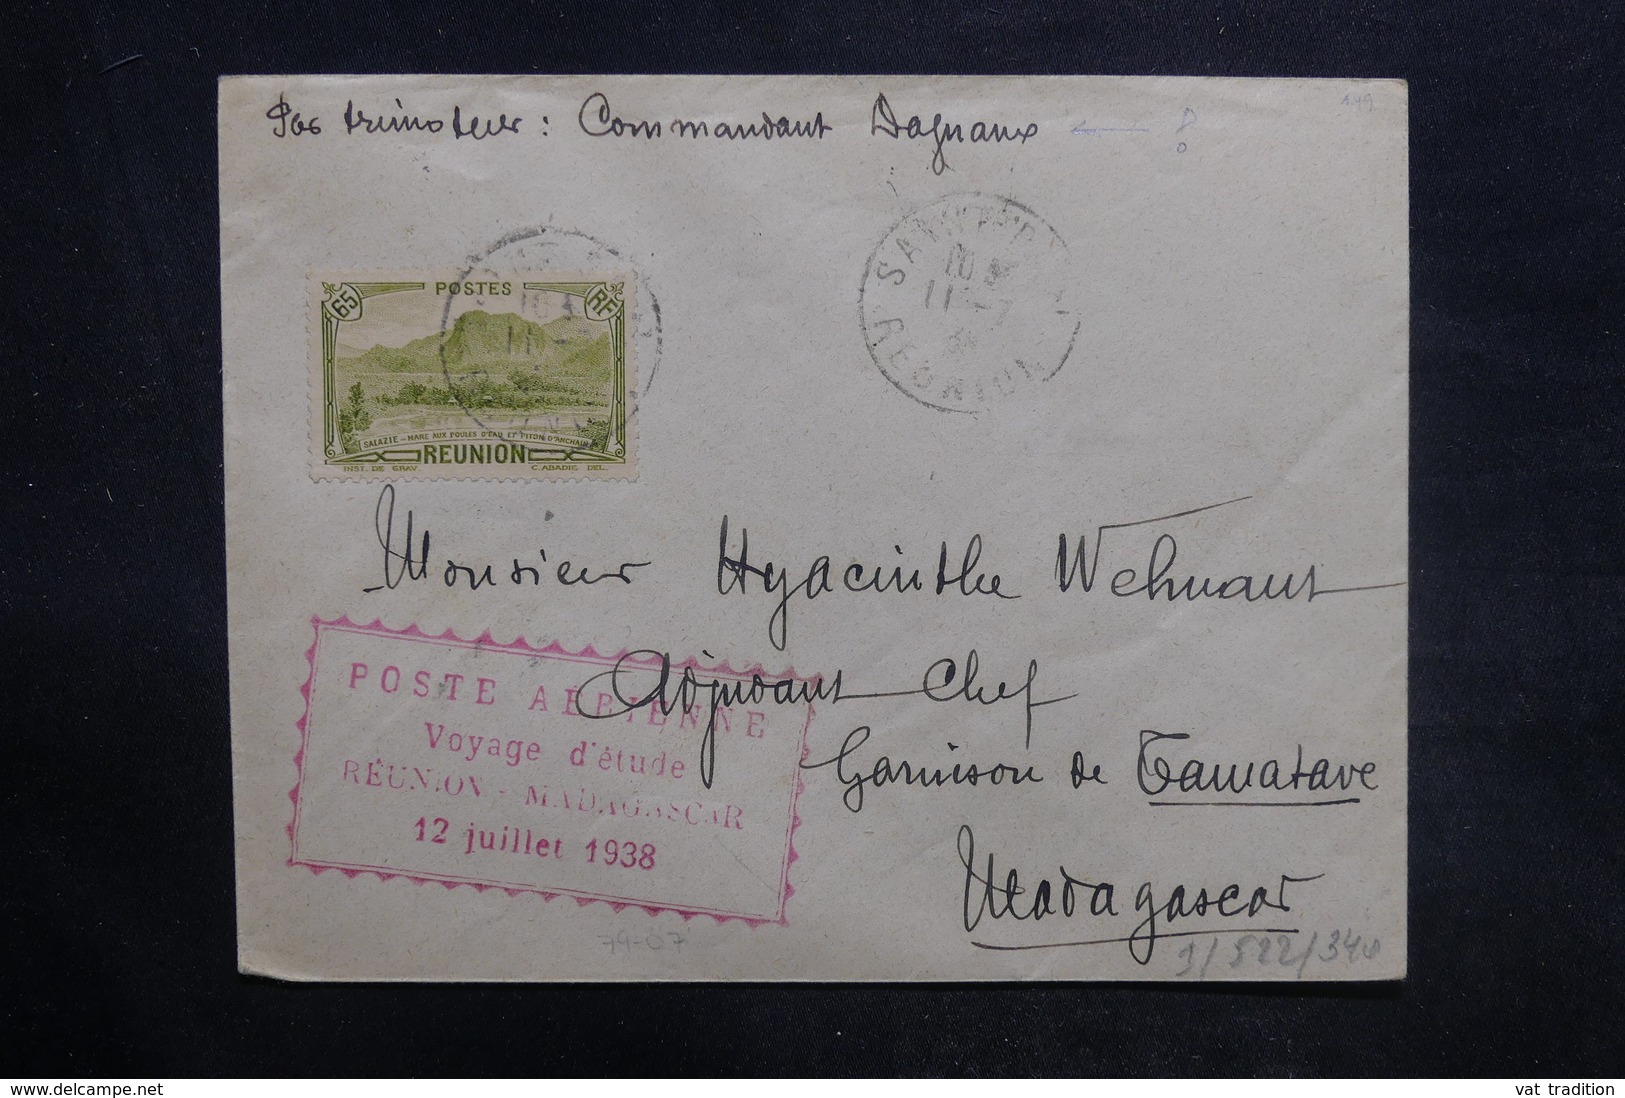 Par trimoteur : Commandant Dagnaux ← ?
1.49
SAINT
10
11 - 7
REUNION
65
POSTES
RF
SALAZIE - MARE AUX POULES D'EAU ET PITON D'ANCHAIN
REUNION
INST. DE GRAV.
C. ABADIE DEL.
Monsieur Hyacinthe Wehuaut
Adjudant Chef
Garnison de Tamatave
Madagascar
POSTE AERIENNE
Voyage d'étude
RÉUNION - MADAGASCAR
12 juillet 1938
79-07
3/522/340
www.delcampe.net
vat tradition